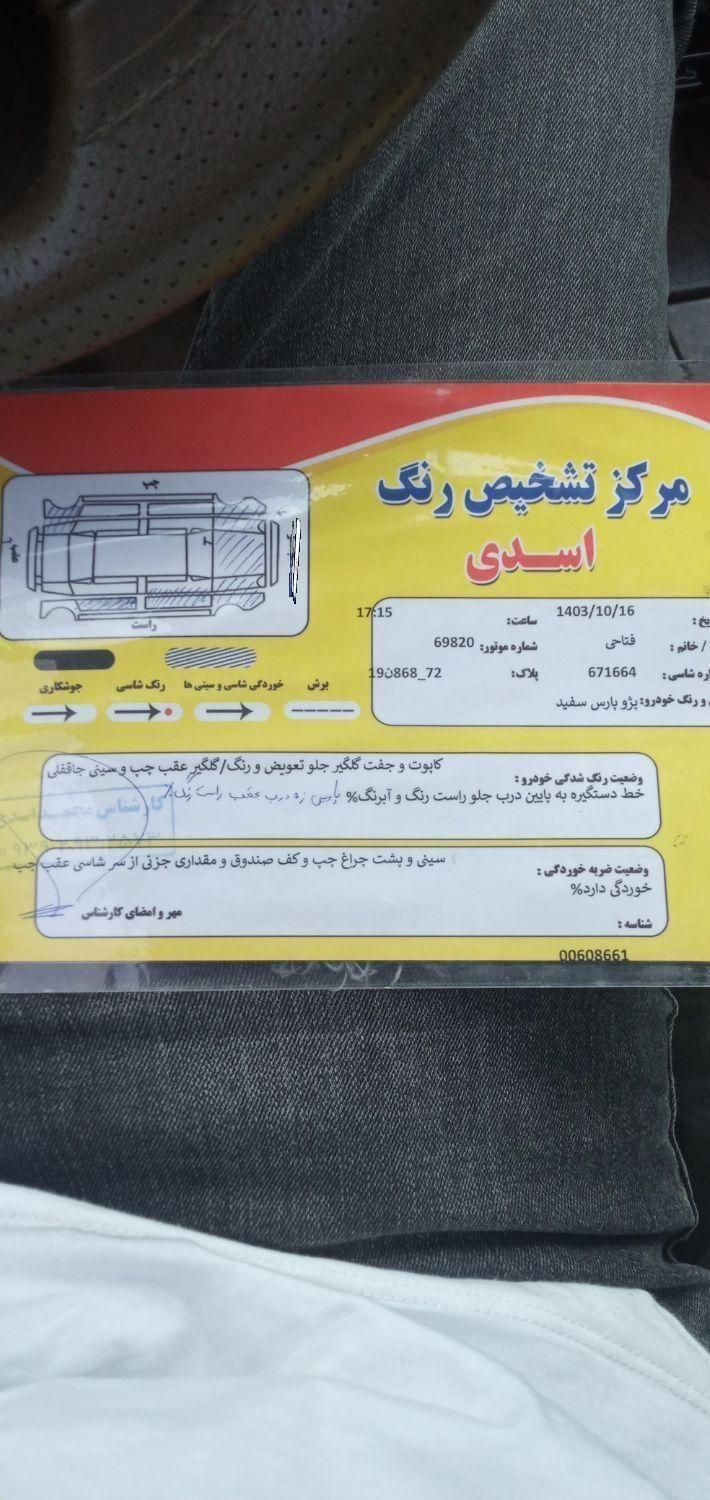 مرکز تشخیص رنگ
اسدی
چپ
عقب
راست
برش
خوردگی شاسی و سینی ها
رنگ شاسی
جوشکاری
1403/10/16
ساعت: 17:15
/ خانم : فتاحی
شماره موتور: 69820
671664
پلاک: 72_868ن19
و رنگ خودرو: پژو پارس سفید
وضعیت رنگ شدگی خودرو : کاپوت و جفت گلگیر جلو تعویض و رنگ/گلگیر عقب چپ و سینی جاقفلی
خط دستگیره به پایین درب جلو راست رنگ و آبرنگ% پایین زه درب عقب راست رنگ%
کارشناس
وضعیت ضربه خوردگی : سینی و پشت چراغ چپ و کف صندوق و مقداری جزئی از سر شاسی عقب چپ
خوردگی دارد%
شناسه :
مهر و امضای کارشناس
00608661